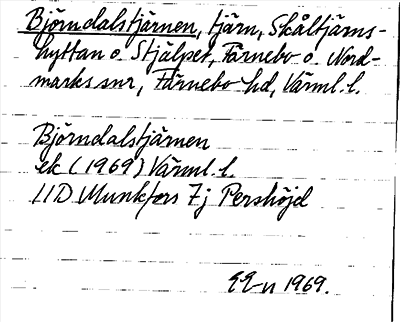 Björndalstjärnen, tjärn, Skåltjärns-
hyttan o. Stjälpet, Färnebo o. Nord-
marks snr, Färnebo hd, Värml. l.
Björndalstjärnen
ek (1969) Värml. l.
11D Munkfors 7j Pershöjd
1969.